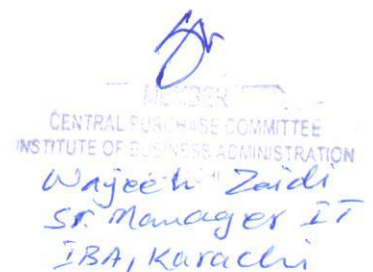 MEMBER
CENTRAL PURCHASE COMMITTEE
INSTITUTE OF BUSINESS ADMINISTRATION
Wajeeh Zaidi
Sr. Manager IT
IBA, Karachi